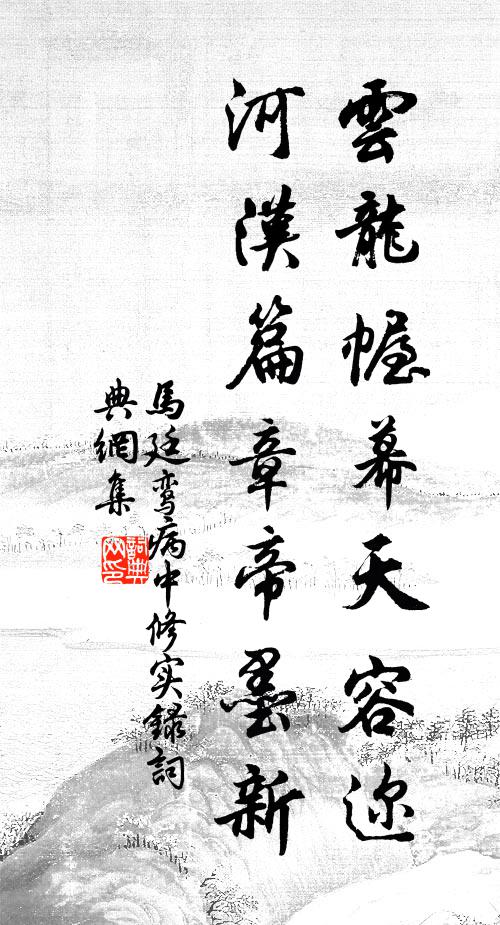 雲龍幄幕天容迩
河漢篇章帝墨新
馬廷鸾病中修实録詞
典網集
詞典
网印